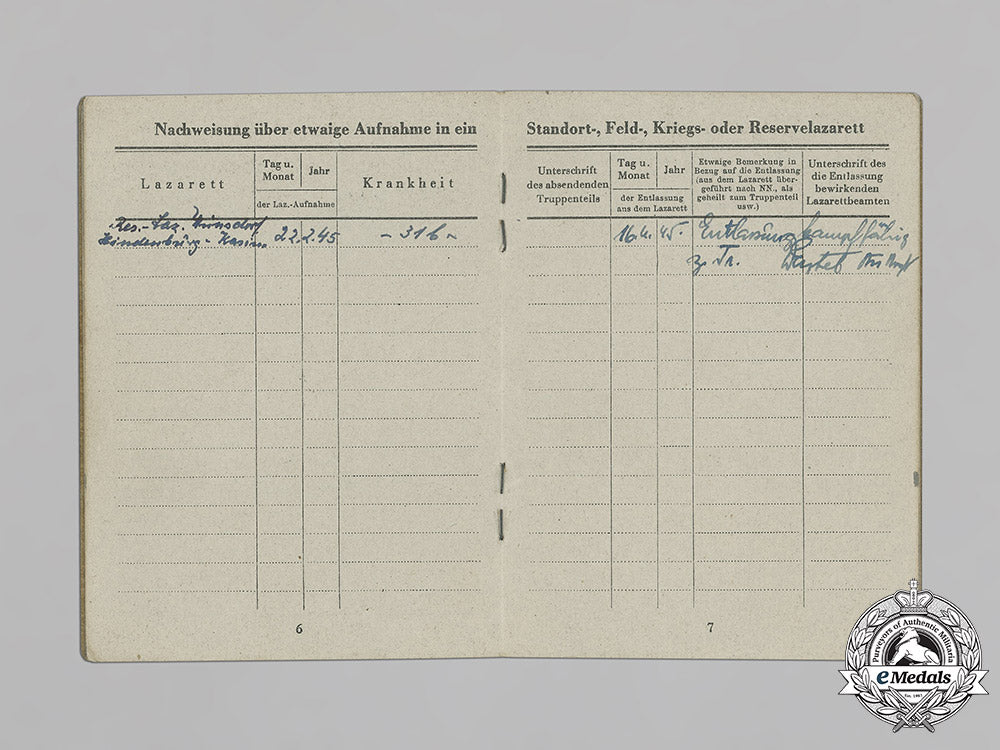 Nachweisung über etwaige Aufnahme in ein
Lazarett
Tag u.
Monat
Jahr
der Laz.-Aufnahme
Krankheit
Res.-Laz. Wünsdorf
Hindenburg-
22.2.45
-316-
6
Standort-, Feld-, Kriegs- oder Reservelazarett
Unterschrift
des absendenden
Truppenteils
Tag u.
Monat
Jahr
der Entlassung
aus dem Lazarett
Etwaige Bemerkung in
Bezug auf die Entlassung
(aus dem Lazarett über-
geführt nach NN., als
geheilt zum Truppenteil
usw.)
Unterschrift des
die Entlassung
bewirkenden
Lazarettbeamten
16.4. 45. Entlassung kampffähig
z. Tr.
7
Purveyors of Authentic Militaria
eMedals